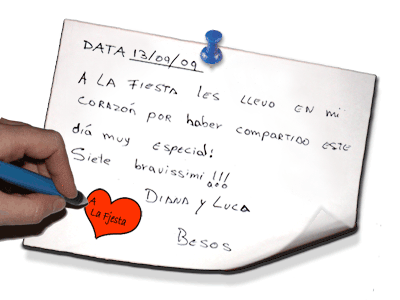 DATA 13/09/09
A LA FIESTA LES LLEVO EN MI
CORAZÓN POR HABER COMPARTIDO ESTE
DÍA MUY ESPECIAL!
SIETE BRAVISSIMI!!!
DIANA Y LUCA
BESOS
A
La Fiesta